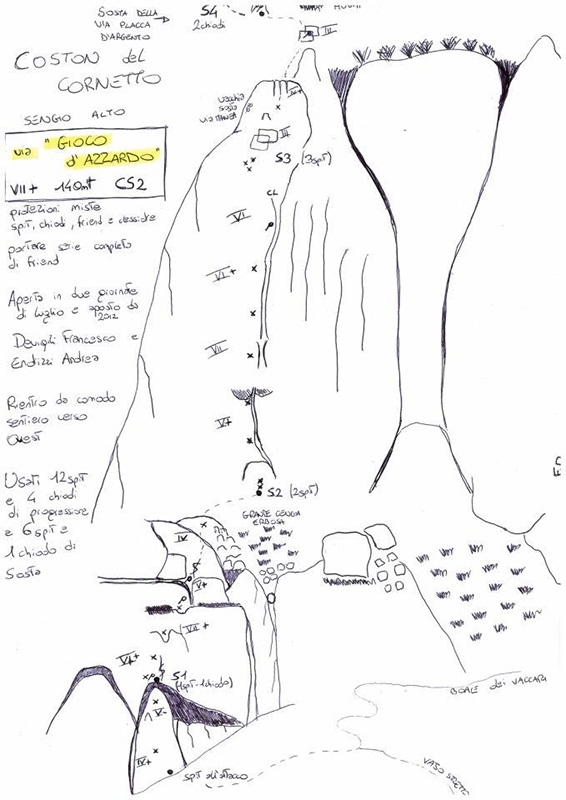 SOSTA DELLA
VIA PLACCA
D'ARGENTO
S4
2chiodi
IV
COSTON del
CORNETTO
SENGIO ALTO
VIA "GIOCO
d'AZZARDO"
VII+ 140mt CS2
protezioni miste
spit, chiodi, friend e clessidre
portare serie completa
di friend
Aperta in due giornate
di luglio e agosto da
2012
Deviglli Francesco e
Endizzi Andrea
Rientro da comodo
sentiero verso
Ovest
Usati 12spit
e 4 chiodi
di progressione
e 6spit e
1chiodo di
Sosta
vecchia
sosta
IV+
III
S3 (3spit)
CL
VI
VI+
VII
V+
S2 (2spit)
GRANDE CENGIA
ERBOSA
IV
V+
VII+
VI+
S1
(1spit-1chiodo)
V-
IV+
spit all'attacco
BOALE dei VACCARI
VASO STRETTO